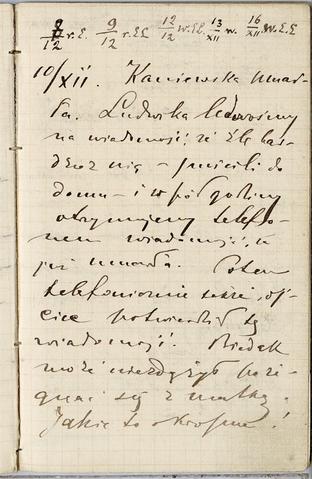 8/12 r.E. 9/12 r.EE 12/12 w.EE. 13/XII w. 16/XII w.E.E
10/XII. Kaniewska umar-
ła. Ludwika
na wiadomość, że źle bar-
dzo z nią – puścili do
domu – i w pół godziny
otrzymujemy telefo-
nem wiadomość, że
już umarła. Potem
telefonicznie także, oj-
ciec potwierdził tę
wiadomość. Biedak
może niezdążył poże-
gnać się z matką.
Jakie to okropne!